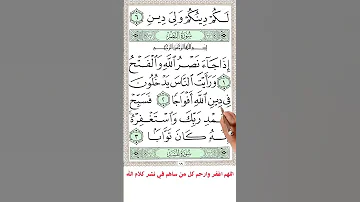 لَكُمْ دِينُكُمْ وَلِيَ دِينِ ٦
سُورَةُ النَّصْرِ
بِسْمِ اللَّهِ الرَّحْمَٰنِ الرَّحِيمِ
إِذَا جَاءَ نَصْرُ اللَّهِ وَالْفَتْحُ
١ وَرَأَيْتَ النَّاسَ يَدْخُلُونَ
فِي دِينِ اللَّهِ أَفْوَاجًا ٢ فَسَبِّحْ
بِحَمْدِ رَبِّكَ وَاسْتَغْفِرْهُ
إِنَّهُ كَانَ تَوَّابًا ٣
اللهم اغفر وارحم كل من ساهم في نشر كلام الله